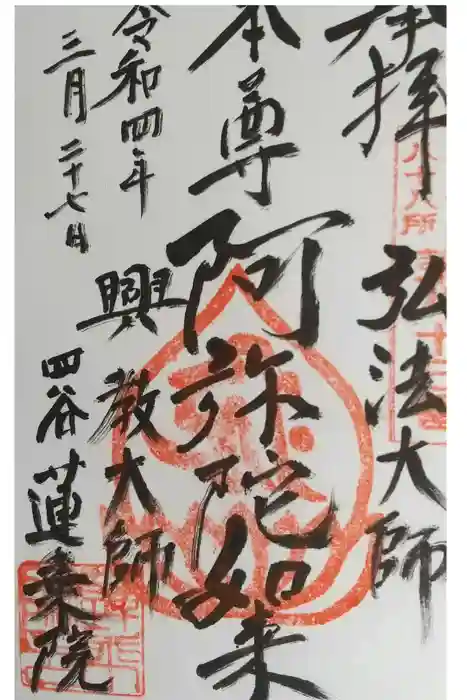 奉拝
弘法大師
本尊阿弥陀如来
興教大師
令和四年
三月二十七日
四谷蓮乗院
八十八所